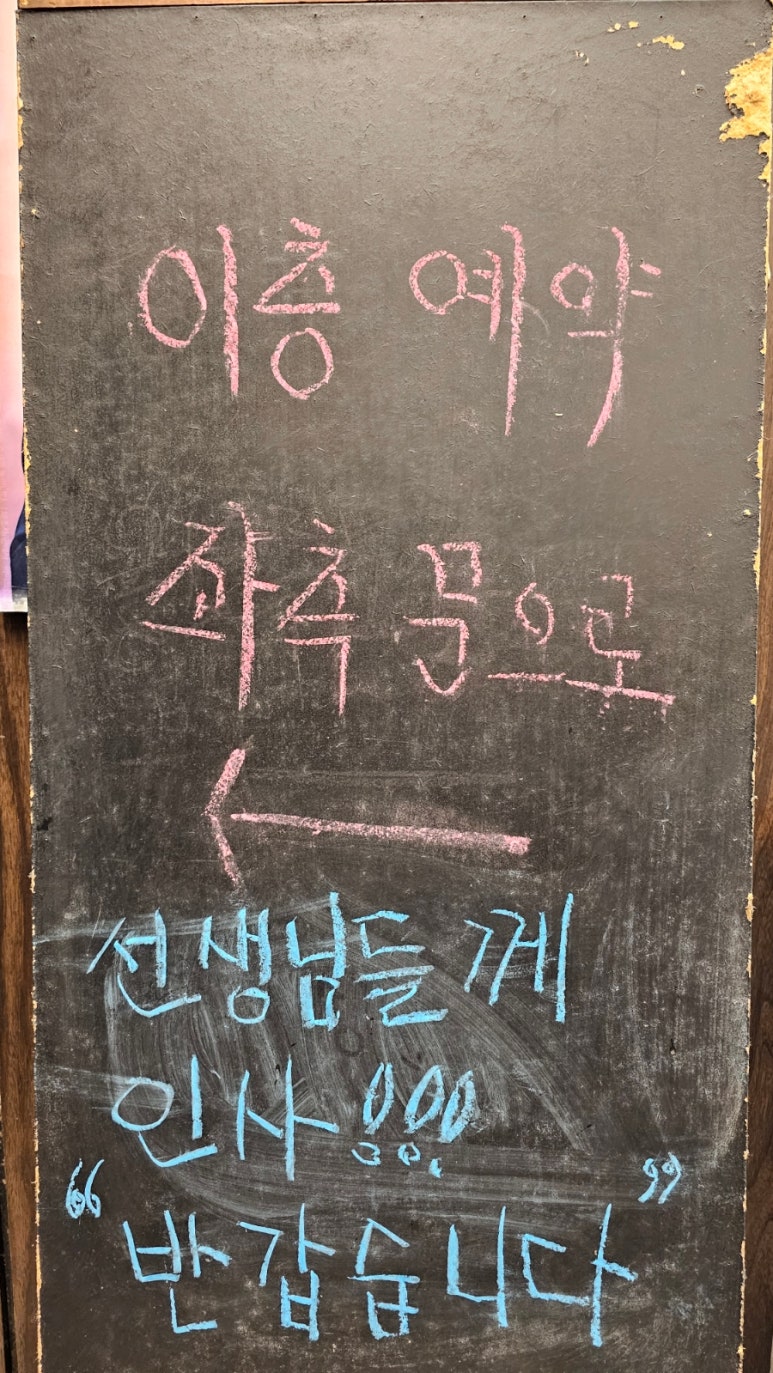 이층 예약
좌측 문으로
선생님들께
인사!!!
“반갑습니다”